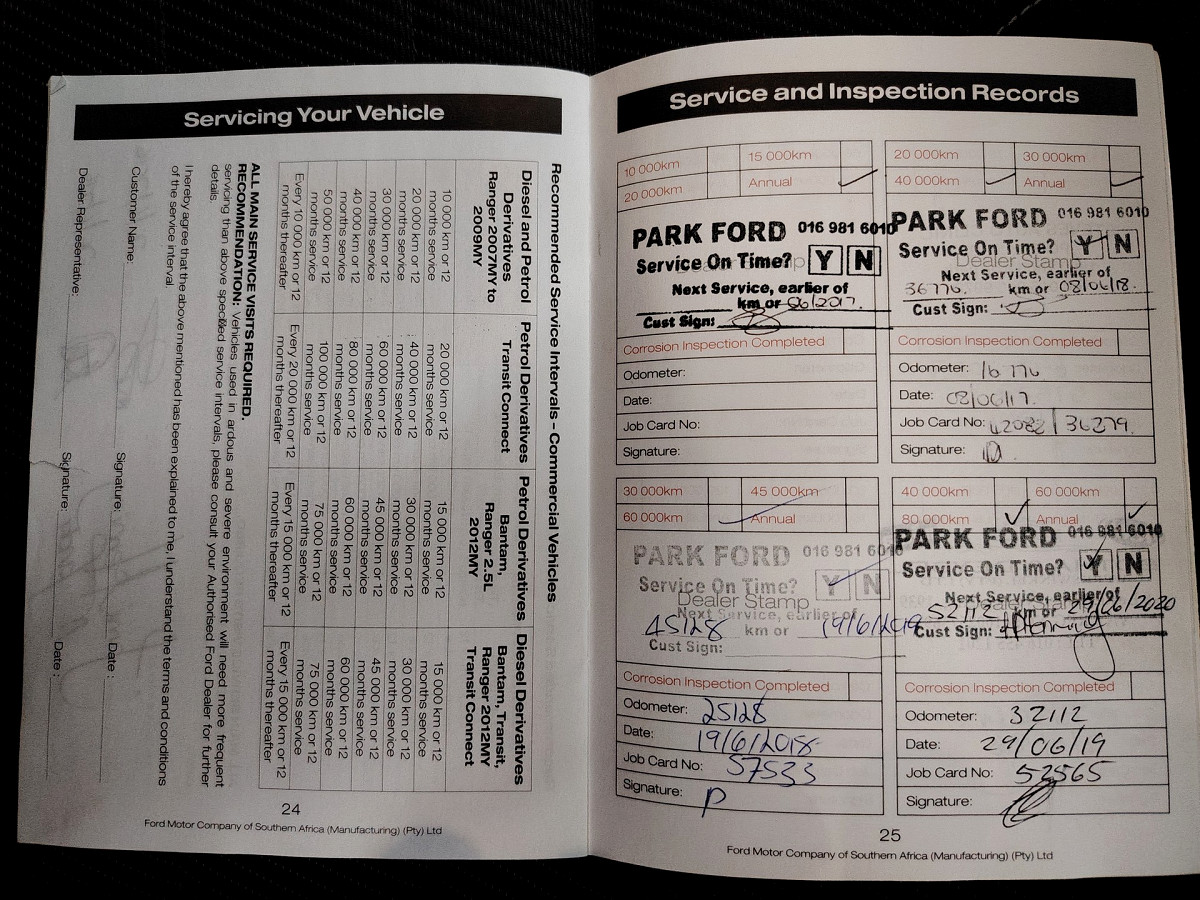 Servicing Your Vehicle
Recommended Service Intervals – Commercial Vehicles
Diesel and Petrol Derivatives Ranger 2007MY to 2009MY
Petrol Derivatives Transit Connect
Petrol Derivatives Bantam, Ranger 2.5L 2012MY
Diesel Derivatives Bantam, Transit, Ranger 2012MY Transit Connect
10 000 km or 12 months service
20 000 km or 12 months service
15 000 km or 12 months service
15 000 km or 12 months service
20 000 km or 12 months service
40 000 km or 12 months service
30 000 km or 12 months service
30 000 km or 12 months service
30 000 km or 12 months service
60 000 km or 12 months service
45 000 km or 12 months service
45 000 km or 12 months service
40 000 km or 12 months service
80 000 km or 12 months service
60 000 km or 12 months service
60 000 km or 12 months service
50 000 km or 12 months service
100 000 km or 12 months service
75 000 km or 12 months service
75 000 km or 12 months service
Every 10 000 km or 12 months thereafter
Every 20 000 km or 12 months thereafter
Every 15 000 km or 12 months thereafter
Every 15 000 km or 12 months thereafter
ALL MAIN SERVICE VISITS REQUIRED.
RECOMMENDATION: Vehicles used in ardous and severe environment will need more frequent
servicing than above specified service intervals, please consult your Authorised Ford Dealer for further
details.
I hereby agree that the above mentioned has been explained to me, I understand the terms and conditions
of the service interval.
Customer Name: Signature: Date :
Dealer Representative: Signature: Date :
24
Ford Motor Company of Southern Africa (Manufacturing) (Pty) Ltd
Service and Inspection Records
10 000km 15 000km
20 000km Annual
PARK FORD 016 981 6010
Service On Time? Y N
Next Service, earlier of
km or 06/2017.
Cust Sign:
Corrosion Inspection Completed
Odometer:
Date:
Job Card No:
Signature:
20 000km 30 000km
40 000km Annual
PARK FORD 016 981 6010
Service On Time? Y N
Dealer Stamp
Next Service, earlier of
36776. km or 08/06/18.
Cust Sign:
Corrosion Inspection Completed
Odometer: 16 776
Date: 08/06/17.
Job Card No: 42082 / 36279.
Signature:
30 000km 45 000km
60 000km Annual
PARK FORD 016 981 6010
Service On Time? Y N
Dealer Stamp
Next Service, earlier of
45128 km or 19/6/2019
Cust Sign:
Corrosion Inspection Completed
Odometer: 25128
Date: 19/6/2018
Job Card No: 57533
Signature: P
40 000km 60 000km
80 000km Annual
PARK FORD 016 981 6010
Service On Time? Y N
Next Service, earlier of
52112 km or 29/06/2020
Cust Sign:
Corrosion Inspection Completed
Odometer: 32112
Date: 29/06/19
Job Card No: 52565
Signature:
25
Ford Motor Company of Southern Africa (Manufacturing) (Pty) Ltd